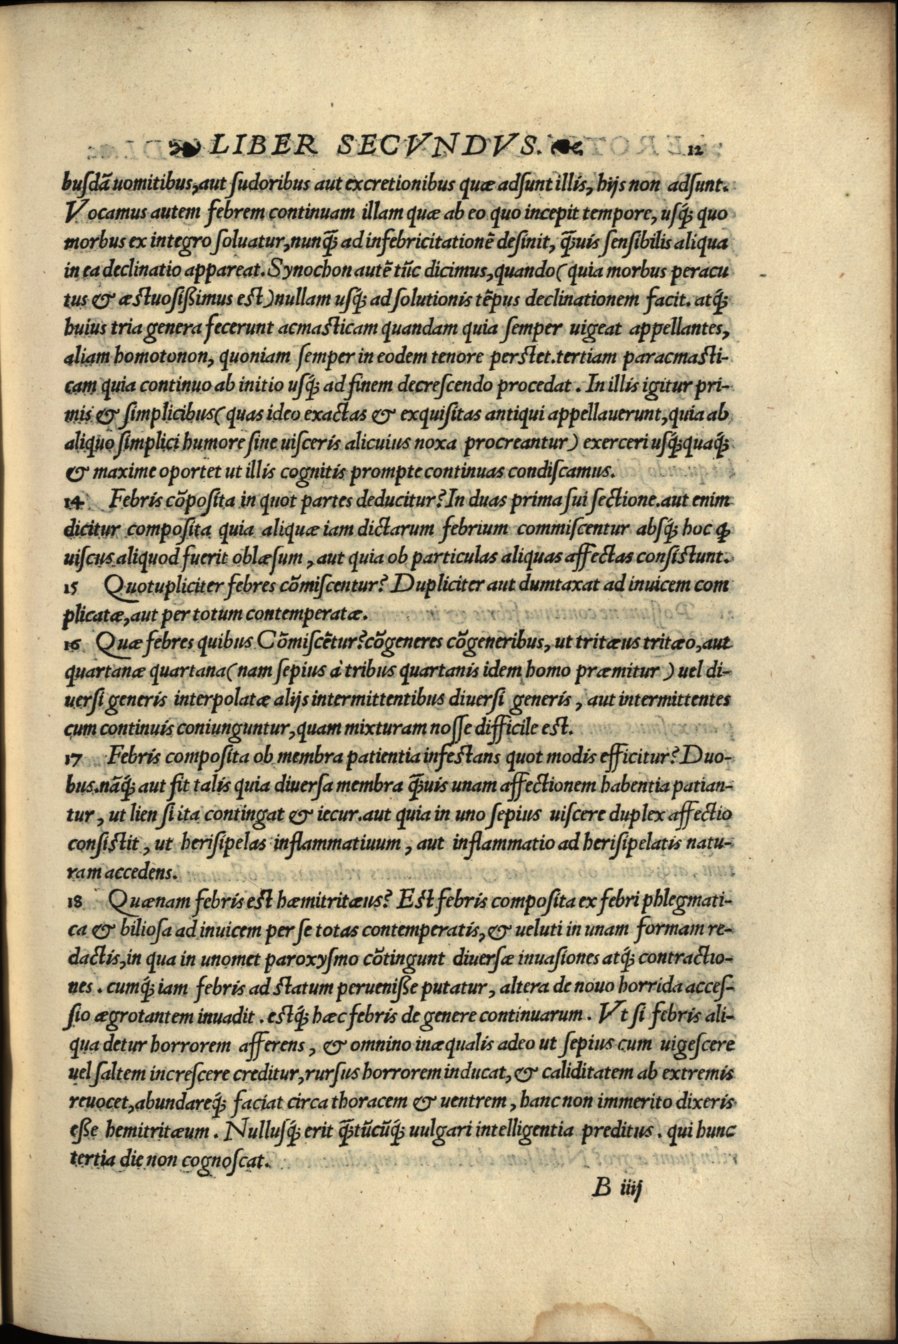 ❧ LIBER SECVNDVS. ☙ 12
busdā uomitibus, aut ſudoribus aut excretionibus quæ adſunt illis, hijs non adſunt.
Vocamus autem febrem continuam illam quæ ab eo quo incepit tempore, uſq; quo
morbus ex integro ſoluatur, nunq̃ ad infebricitationē deſinit, q̃uis ſenſibilis aliqua
in ea declinatio appareat. Synochon autē tūc dicimus, quando (quia morbus peracu
tus & æſtuoſißimus eſt) nullam uſq; ad ſolutionis tēpus declinationem facit. atq;
huius tria genera fecerunt acmaſticam quandam quia ſemper uigeat appellantes,
aliam homotonon, quoniam ſemper in eodem tenore perſtet. tertiam paracmaſti-
cam quia continuo ab initio uſq; ad finem decreſcendo procedat. In illis igitur pri-
mis & ſimplicibus (quas ideo exactas & exquiſitas antiqui appellauerunt, quia ab
aliquo ſimplici humore ſine uiſceris alicuius noxa procreantur) exerceri uſq;quaq;
& maxime oportet ut illis cognitis prompte continuas condiſcamus.
14 Febris cōpoſita in quot partes deducitur? In duas prima ſui ſectione. aut enim
dicitur compoſita quia aliquæ iam dictarum febrium commiſcentur abſq; hoc ꝙ
uiſcus aliquod fuerit oblæſum, aut quia ob particulas aliquas affectas conſiſtunt.
15 Quotupliciter febres cōmiſcentur? Dupliciter aut dumtaxat ad inuicem com
plicatæ, aut per totum contemperatæ.
16 Quæ febres quibus Cōmiſcētur? cōgeneres cōgeneribus, ut tritæus tritæo, aut
quartanæ quartana (nam ſepius à tribus quartanis idem homo præmitur) uel di-
uerſi generis interpolatæ alijs intermittentibus diuerſi generis, aut intermittentes
cum continuis coniunguntur, quam mixturam noſſe difficile eſt.
17 Febris compoſita ob membra patientia infeſtans quot modis efficitur? Duo-
bus. nāq; aut fit talis quia diuerſa membra q̃uis unam affectionem habentia patian-
tur, ut lien ſi ita contingat & iecur. aut quia in uno ſepius uiſcere duplex affectio
conſiſtit, ut heriſipelas inflammatiuum, aut inflammatio ad heriſipelatis natu-
ram accedens.
18 Quænam febris eſt hæmitritæus? Eſt febris compoſita ex febri phlegmati-
ca & bilioſa ad inuicem per ſe totas contemperatis, & ueluti in unam formam re-
dactis, in qua in unomet paroxyſmo cōtingunt diuerſæ inuaſiones atq; contractio-
nes. cumq; iam febris ad ſtatum perueniße putatur, altera de nouo horrida acceſ-
ſio ægrotantem inuadit. eſtq; hæc febris de genere continuarum. Vt ſi febris ali-
qua detur horrorem afferens, & omnino inæqualis adeo ut ſepius cum uigeſcere
uel ſaltem increſcere creditur, rurſus horrorem inducat, & caliditatem ab extremis
reuocet, abundareq; faciat circa thoracem & uentrem, hanc non immerito dixeris
eße hemitritæum. Nulluſq; erit q̃tūcūq; uulgari intelligentia preditus. qui hunc
tertia die non cognoſcat.
B iiij